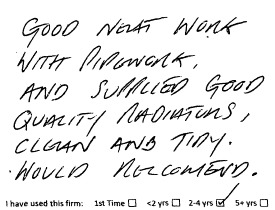 GOOD NEAT WORK
WITH PIPEWORK,
AND SUPPLIED GOOD
QUALITY RADIATORS,
CLEAN AND TIDY.
WOULD RECCOMEND.
I have used this firm: 1st Time ☐ <2 yrs ☐ 2-4 yrs ☑ 5+ yrs ☐